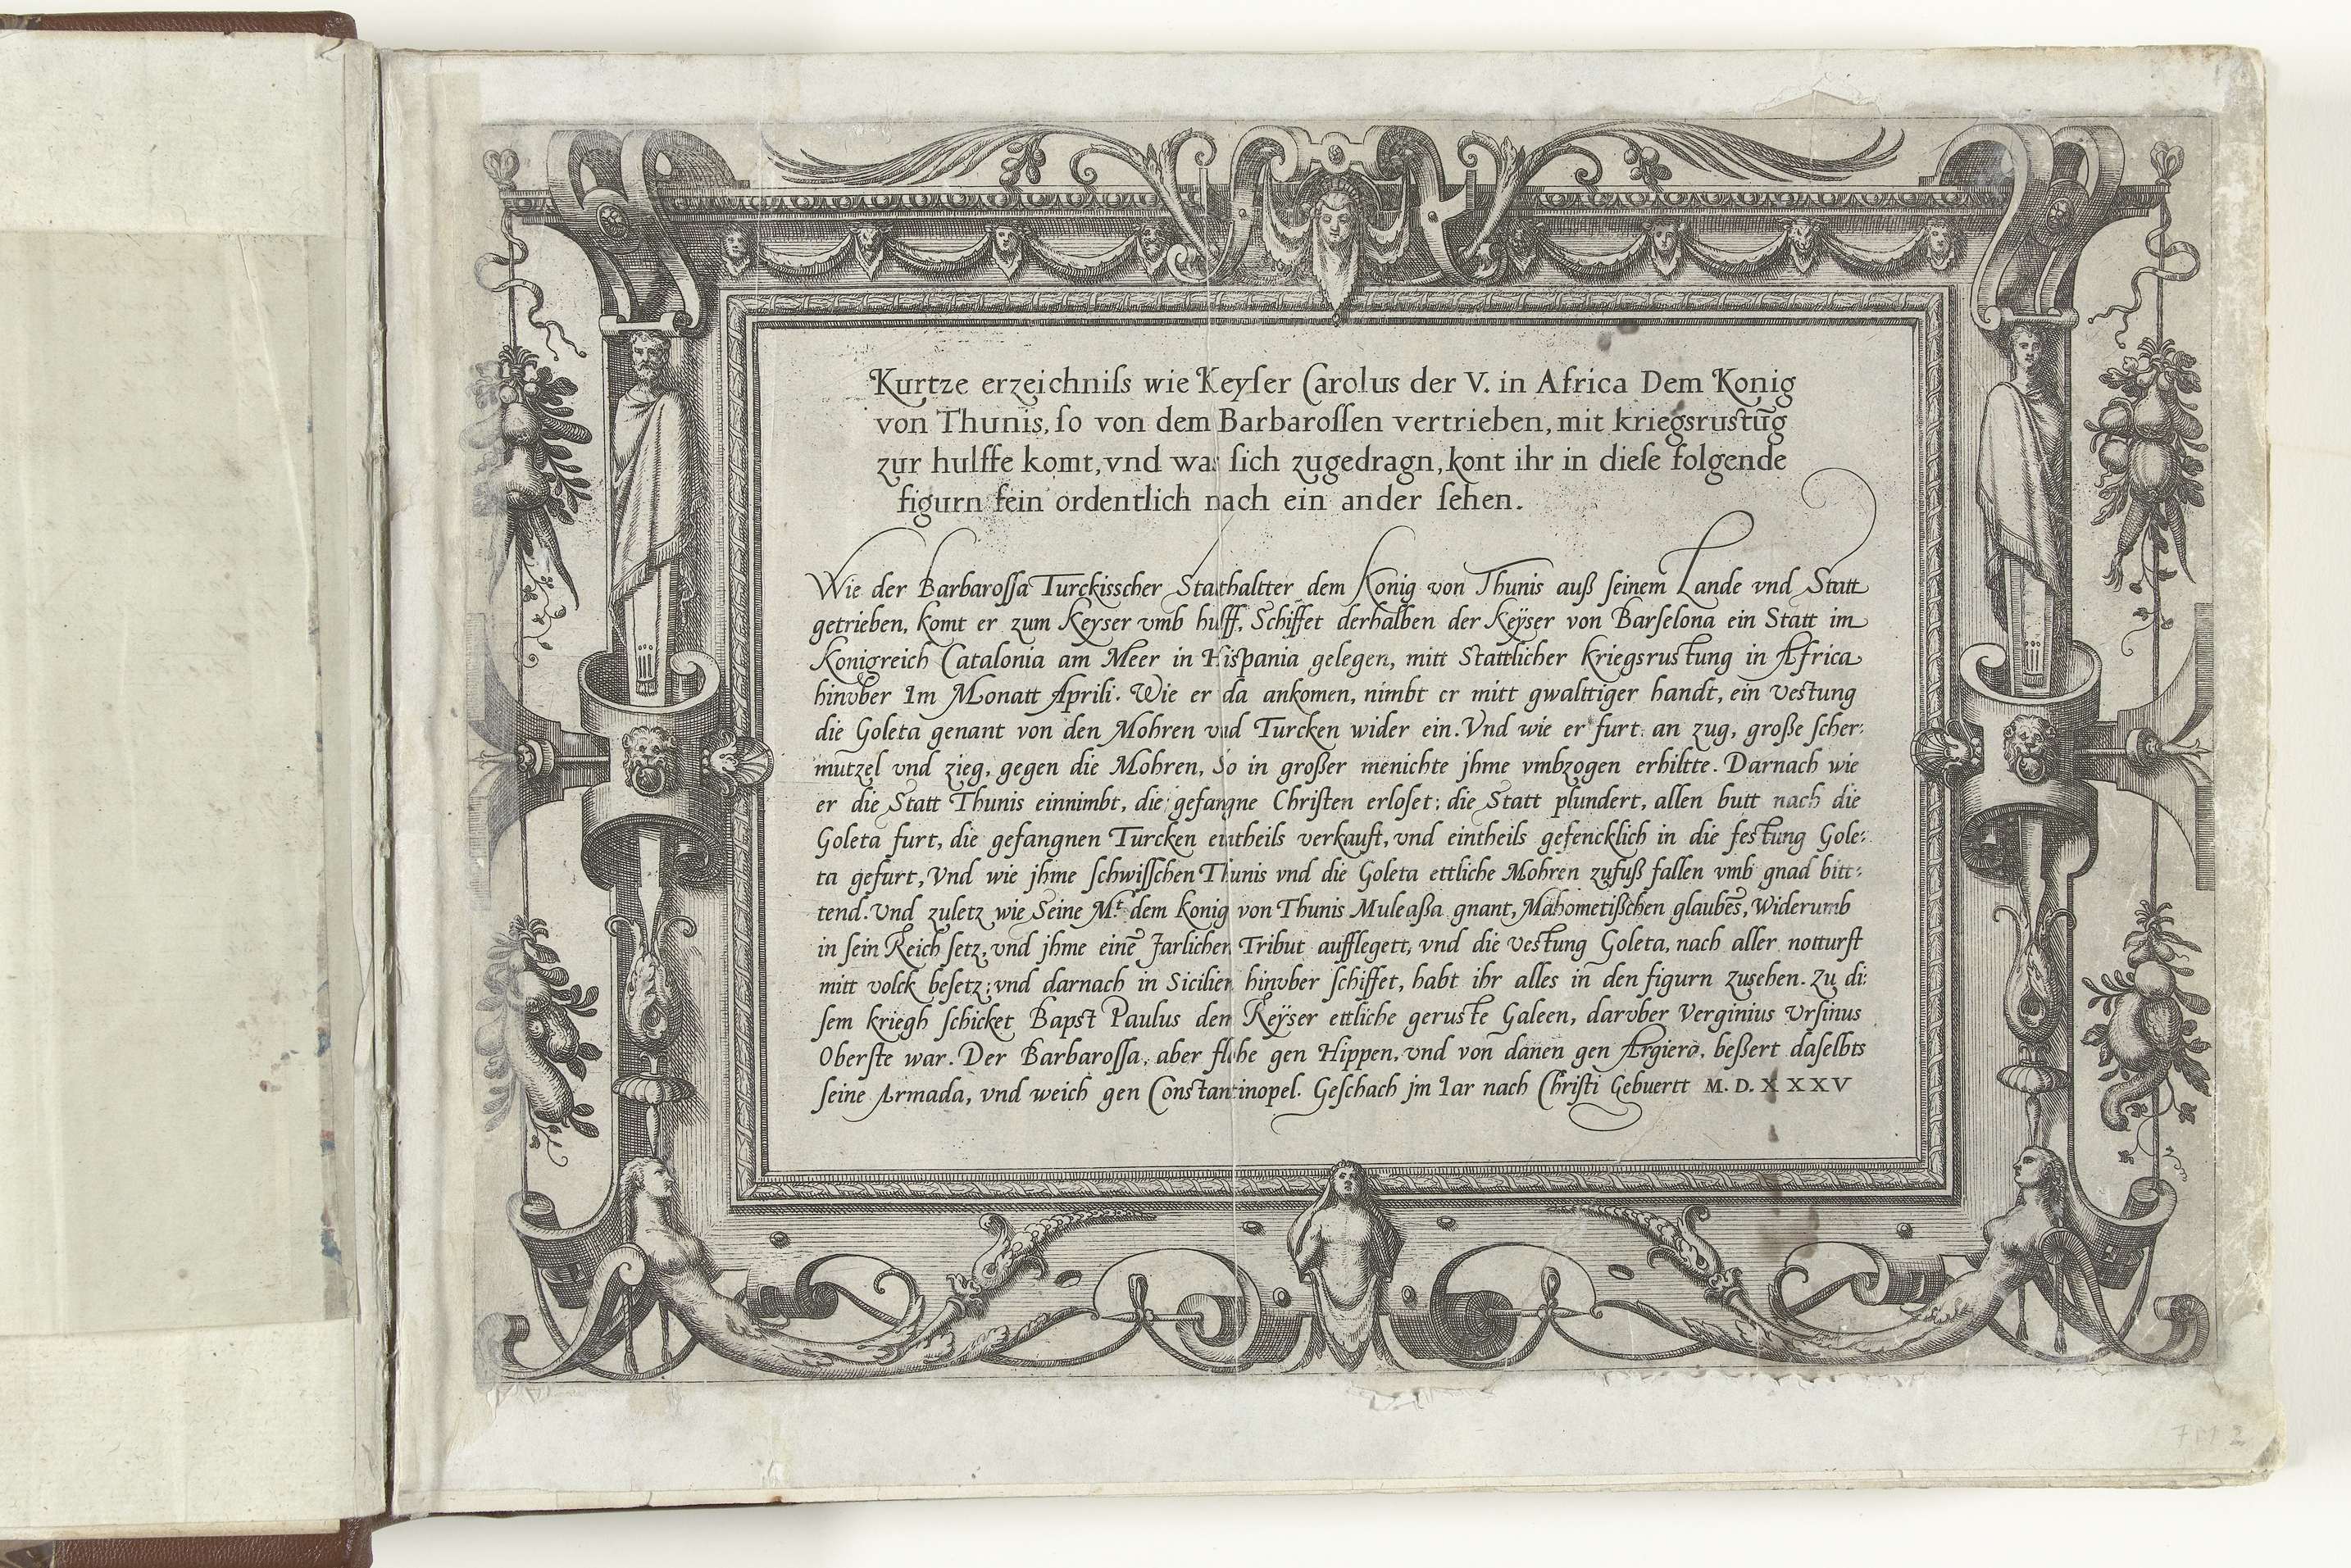 Kurtze erzeichniſs wie Keyſer Carolus der V. in Africa Dem Konig
von Thunis, ſo von dem Barbaroſſen vertrieben, mit kriegsrustūg
zur hulffe komt, vnd was ſich zugedragn, kont ihr in dieſe folgende
figurn fein ordentlich nach ein ander ſehen.
Wie der Barbaroſſa Turckisscher Statthaltter dem Konig von Thunis auß ſeinem Lande vnd Statt
getrieben, komt er zum Keyser vmb hulff, Schiffet derhalben der Keÿser von Barſelona ein Statt im
Konigreich Catalonia am Meer in Hispania gelegen, mitt Stattlicher kriegsrustung in Africa
hinvber Im Monatt Aprili. Wie er da ankomen, nimbt er mitt gwalttiger handt, ein vestung
die Goleta genant von den Mohren vnd Turcken wider ein. Vnd wie er furt an zug, große ſcher:
mutzel vnd zieg, gegen die Mohren, So in großer menichte jhme vmbzogen erhiltte. Darnach wie
er die Statt Thunis einnimbt, die gefangne Chriſten erloſet, die Statt plundert, allen butt nach die
Goleta furt, die gefangnen Turcken eintheils verkauft, vnd eintheils gefencklich in die festung Gole:
ta gefurt, Vnd wie jhme ſchwiſſchen Thunis vnd die Goleta ettliche Mohren zufuß fallen vmb gnad bitt:
tend. Vnd zuletz wie Seine M.t dem Konig von Thunis Muleaßa gnant, Mahometißchen glaubēs, Widerumb
in ſein Reich ſetz, vnd jhme einē Jarlichen Tribut aufflegett, vnd die vestung Goleta, nach aller notturft
mitt volck beſetz; vnd darnach in Sicilien hinvber ſchiffet, habt ihr alles in den figurn zuſehen. Zu di:
ſem kriegh ſchicket Bapst Paulus dem Keÿser ettliche geruste Galeen, darvber Verginius Vrſinus
Oberſte war. Der Barbaroſſa, aber flohe gen Hippen, vnd von danen gen Argiero, beßert daſelbts
ſeine Armada, vnd weich gen Constantinopel. Geſchach jm Iar nach Chriſti Gebuertt M. D. X X X V